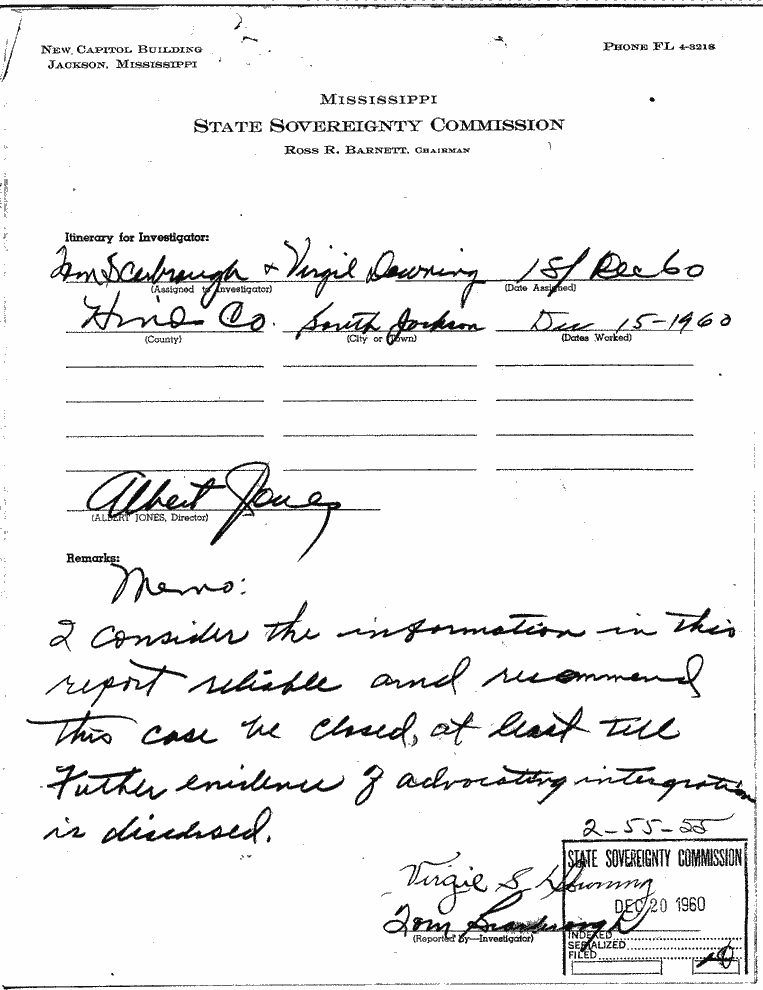 NEW CAPITOL BUILDING
JACKSON, MISSISSIPPI
PHONE FL 4-3218
MISSISSIPPI
STATE SOVEREIGNTY COMMISSION
ROSS R. BARNETT, CHAIRMAN
Itinerary for Investigator:
Tom Scarbrough & Virgil Downing 15/ Dec 60
(Assigned to Investigator) (Date Assigned)
Hinds Co. South Jackson Dec 15-1960
(County) (City or Town) (Dates Worked)
Albert Jones
(ALBERT JONES, Director)
Remarks:
Memo:
I consider the information in this
report reliable and recommend
this case be closed, at least till
Futher evidence of advocating intergration
is disclosed.
2-55-55
Virgil S Downing
Tom Scarbrough
(Reported By—Investigator)
STATE SOVEREIGNTY COMMISSION
DEC 20 1960
INDEXED
SERIALIZED
FILED